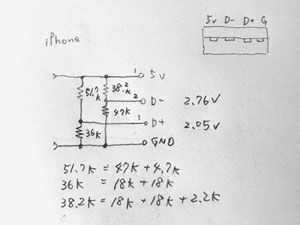 iPhone
5v D- D+ G
1 5v
51.7k 38.2k
2 D- 2.76v
47k
3 D+ 2.05v
36k
GND
51.7k = 47k + 4.7k
36k = 18k + 18k
38.2k = 18k + 18k + 2.2k